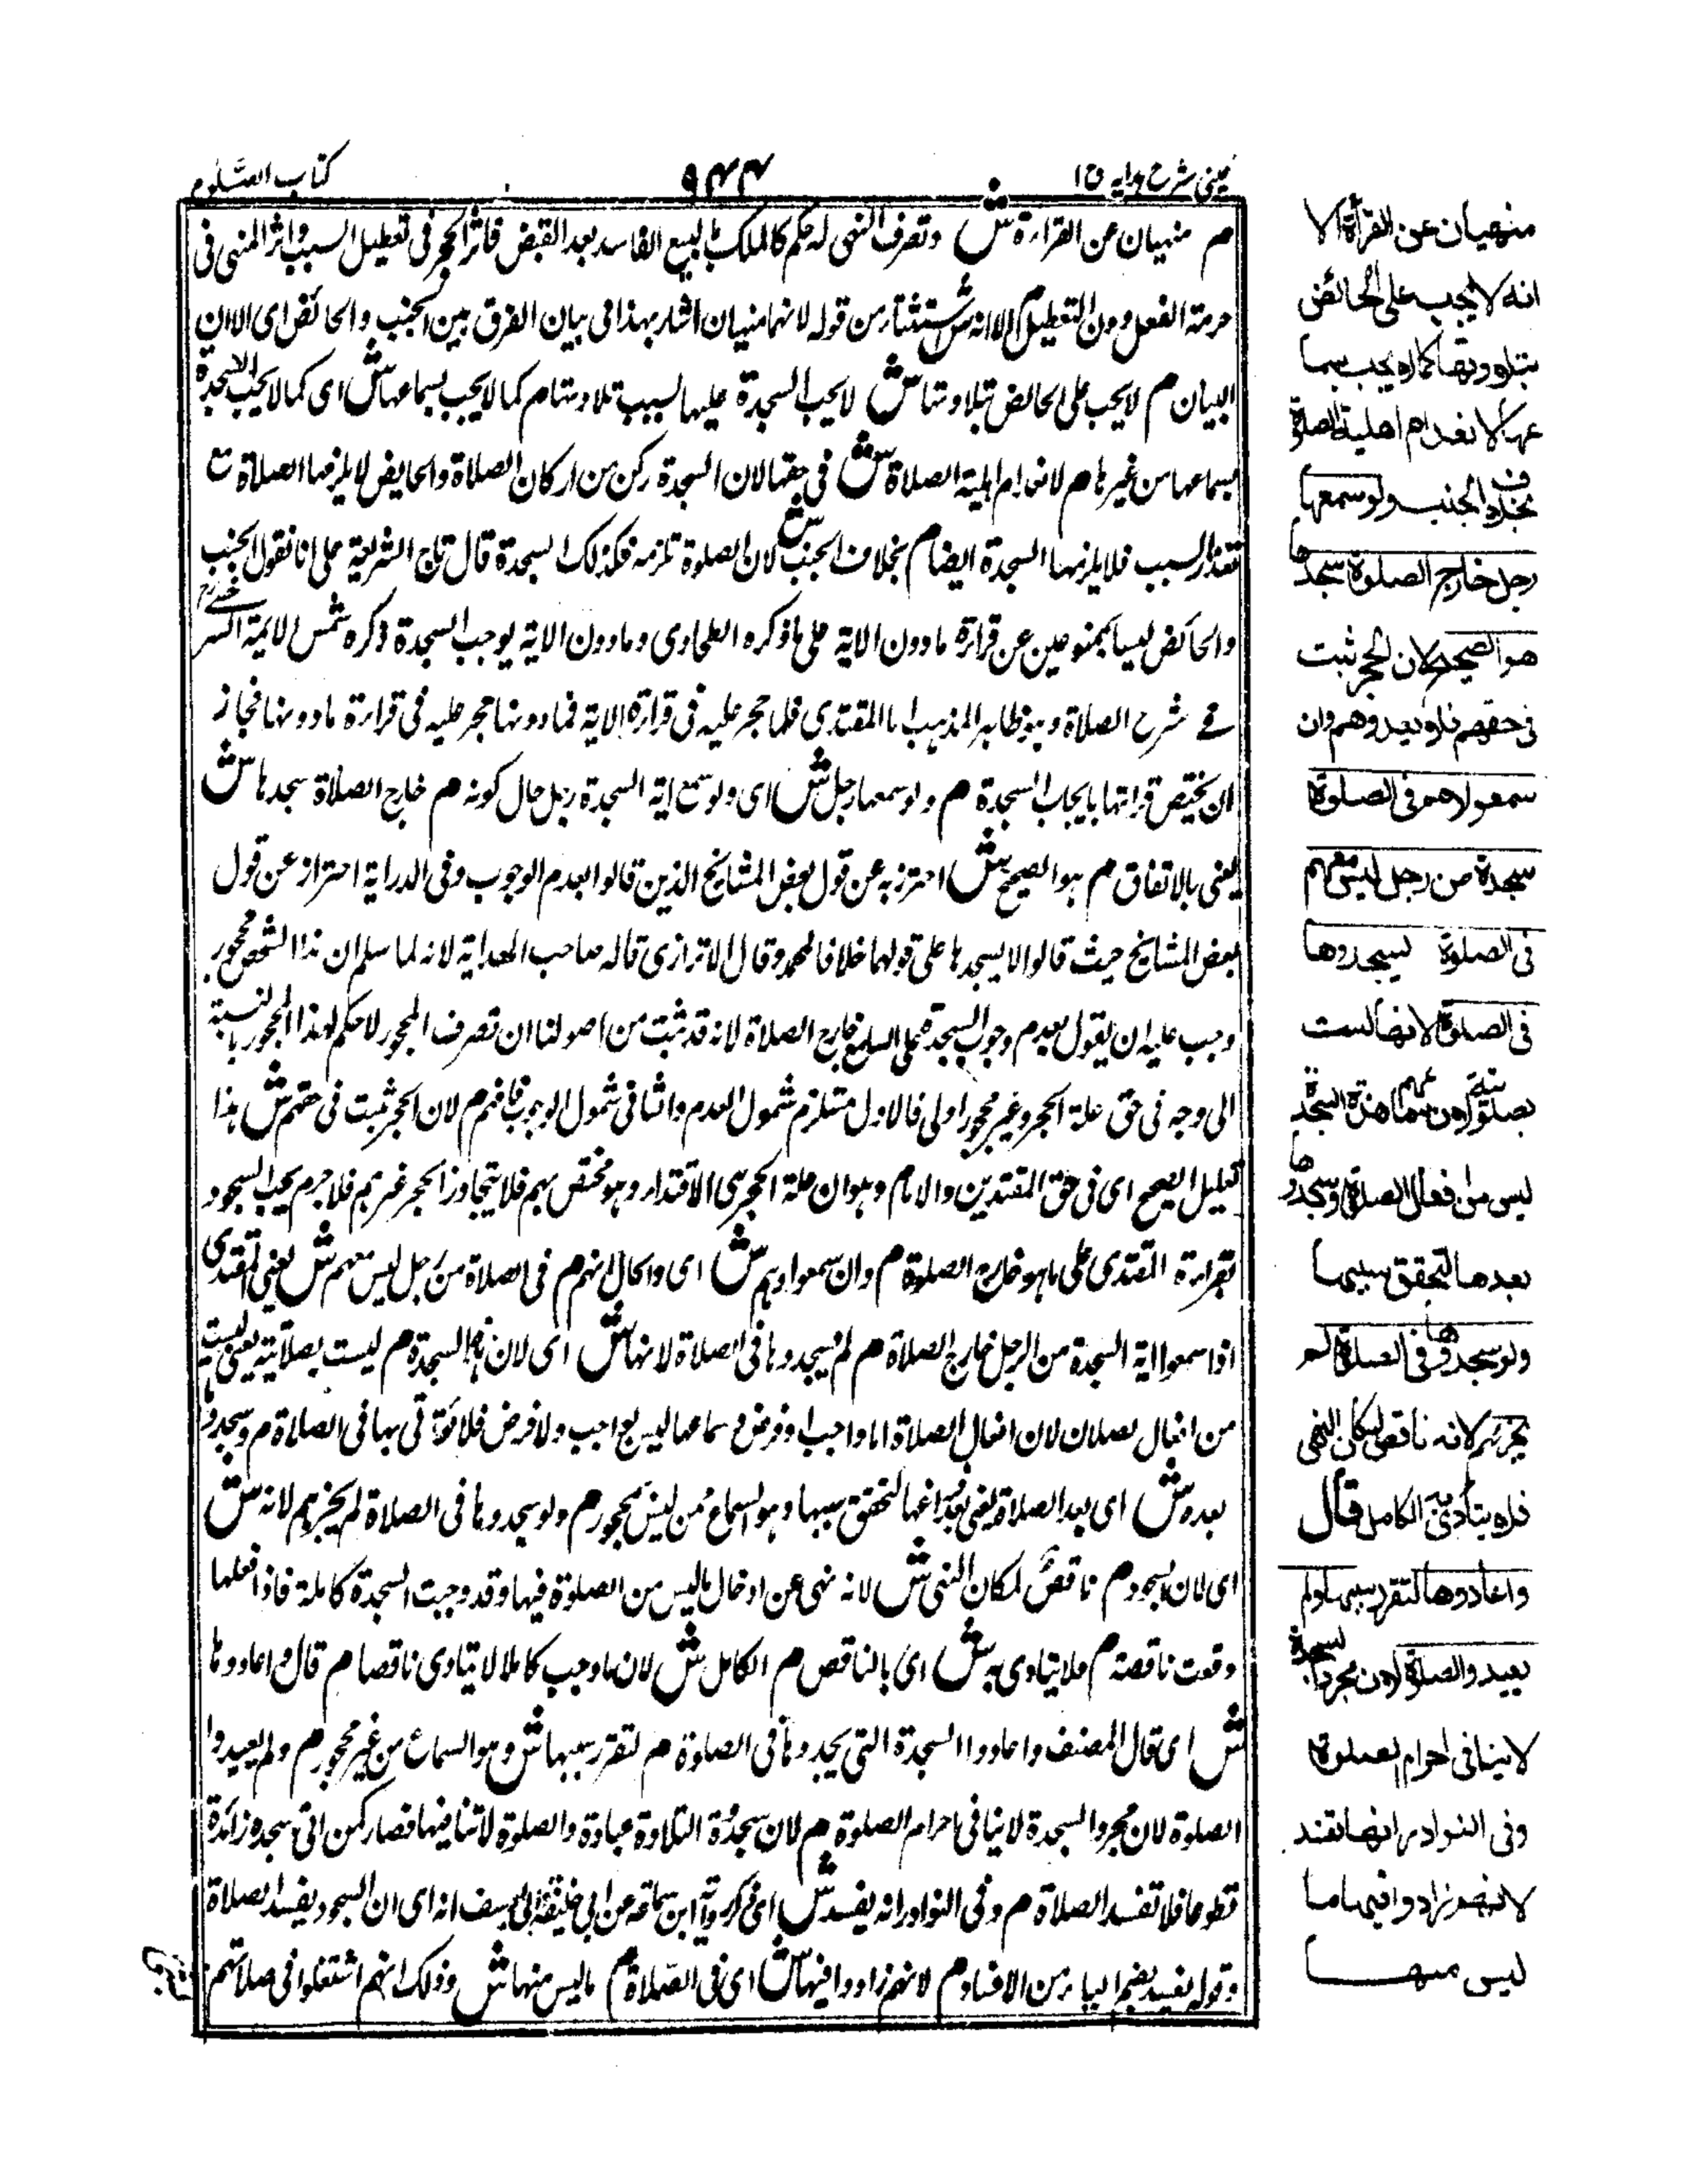 عینی شرح ہدایہ ج ا
۹۴۴
کتاب الصلوٰة
م منہیان عن القراءة ش وتصرف النہی لہ حکم کالملک بالبیع الفاسد بعد القبض فاثر الحجر فی تعطیل السبب واثر المنہی فی
حرمة الفعل دون التعطیل م الا انہ ش استثناء من قولہ لانہما منہیان اشار بہذا فی بیان الفرق بین الجنب والحائض ای الا ان
البیان م لا یجب علی الحائض بتلاوتہا ش لا یجب السجدة علیہا بسبب تلاوتہا م کما لا یجب بسماعہا ش ای کما لا یجب السجدة
بسماعہا من غیرہا م لانعدام اہلیة الصلاة ش فی حقہا لان السجدة رکن من ارکان الصلاة والحایض لا یلزمہا الصلاة مع
تقرر السبب فلا یلزمہا السجدة ایضا م بخلاف الجنب ش لان الصلوة تلزمہ فکذلک السجدة قال تاج الشریعة علی انا نقول الجنب
والحائض لیسا بممنوعین عن قراءة مادون الایة علی ما ذکرہ الطحاوی ومادون الایة یوجب السجدة ذکرہ شمس الایمة السرخسی رح
فی شرح الصلاة وہو ظاہر المذہب اما المقتدی فلما حجر علیہ فی قراءة الایة فما دونہا حجر علیہ فی قراءة ما دونہا فجاز
ان یختص قراءتہا بایجاب السجدة م ولو سمعہا رجل ش ای ولو سمع ایة السجدة رجل حال کونہ م خارج الصلاة سجدہا ش
یعنی بالاتفاق م ہو الصحیح ش احترز بہ عن قول بعض المشایخ الذین قالوا بعدم الوجوب وفی الدرایة احتراز عن قول
بعض المشایخ حیث قالوا لا یسجدہا علی قولہما خلافا لمحمد وقال الاترازی قالہ صاحب الہدایة لانہ لما سلم ان ہذا الشخص محجور
وجب علیہ ان یقول بعدم وجوب السجدة علی السامع خارج الصلاة لانہ قد ثبت من اصولنا ان تصرف المحجور لا حکم لہ ہذا المحجور بالنسبة
الی وجہ فی حق علة الحجر وغیر محجور اولی فالاول مستلزم شمول العدم والثانی شمول الوجوب فافہم م لان الحجر ثبت فی حقہم ش ہذا
تعلیل الصحیح ای فی حق المقتدین والامام وہو ان علة الحجر ہی الاقتداء وہو مختص بہم فلا یتجاوز الحجر غیرہم فلا جرم یجب السجود
بقراءة المقتدی علی ما ہو خارج الصلوة م وان سمعوا وہم ش ای والحال انہم م فی الصلاة من رجل لیس معہم ش یعنی المقتدی
اذا سمعوا ایة السجدة من الرجل خارج الصلاة م لم یسجدوہا فی الصلاة لانہا ش ای لان ہذہ السجدة م لیست بصلاتیة یعنی لیست
من افعال صلاتہ لان افعال الصلاة اما واجب او فرض وسماعہا لیس بواجب ولا فرض فلا تؤتی بہا فی الصلاة م وسجدوہا
بعدہ ش ای بعد الصلاة یعنی بعد فراغہا لتحقق سببہا وہو السماع ممن لیس بمحجور م ولو سجدوہا فی الصلاة لم یجزہم لانہ ش
ای لان السجود م ناقص لمکان النہی ش لانہ نہی عن ادخال ما لیس من الصلوة فیہا وقد وجبت السجدة کاملة فاذا فعلہا
وقعت ناقصة م فلا یتادی بہ ش ای بالناقص م الکامل ش لان ما وجب کاملا لا یتادی ناقصا م قال واعادوہا
ش ای قال المصنف واعادوا السجدة التی سجدوہا فی الصلوة م لتقرر سببہا ش وہو السماع من غیر محجور م ولم یعیدوا
الصلوة لان مجرد السجدة لا ینافی احرام الصلوة م لان سجدة التلاوة عبادة والصلوة لا تنافیہا فصار کمن اتی بسجدة زائدة
تطوعا فلا تفسد الصلاة م وفی النوادر انہ یفسد ش ای ذکر روایة ابن سماعة عن ابی حنیفة ابی یوسف انہ ای ان السجود یفسد الصلاة
وقولہ یفسد بضم الیاء من الافساد م لانہم زادوا فیہا ش ای فی الصلاة م ما لیس منہا ش وذلک انہم اشتغلوا فی صلاتہم
منهيان عن القراءة الا
انه لا يجب على الحائض
بتلاوتها كما لا يجب بسما
عها لانعدام اهلية الصلوة
بخلاف الجنب ولو سمعها
رجل خارج الصلوة سجدها
هو الصحيح لان الحجر ثبت
فى حقهم فلا يعدوهم وان
سمعوا وهم فى الصلوة
سجدة من رجل ليس معهم
فى الصلوة لم يسجدوها
فى الصلوة لانها ليست
بصلوتية لان سماعهم هذه السجدة
ليس من افعال الصلوة وسجدوها
بعدها لتحقق سببها
ولو سجدوها فى الصلوة لم
يجزهم لانه ناقص لمكان النهى
فلا يتأدى به الكامل قال
واعادوها لتقرر سببها ولم
يعيدوا الصلوة لان مجرد السجدة
لا ينافى احرام الصلوة
وفى النوادر انها تفسد
لانهم زادوا فيها ما
ليس منها